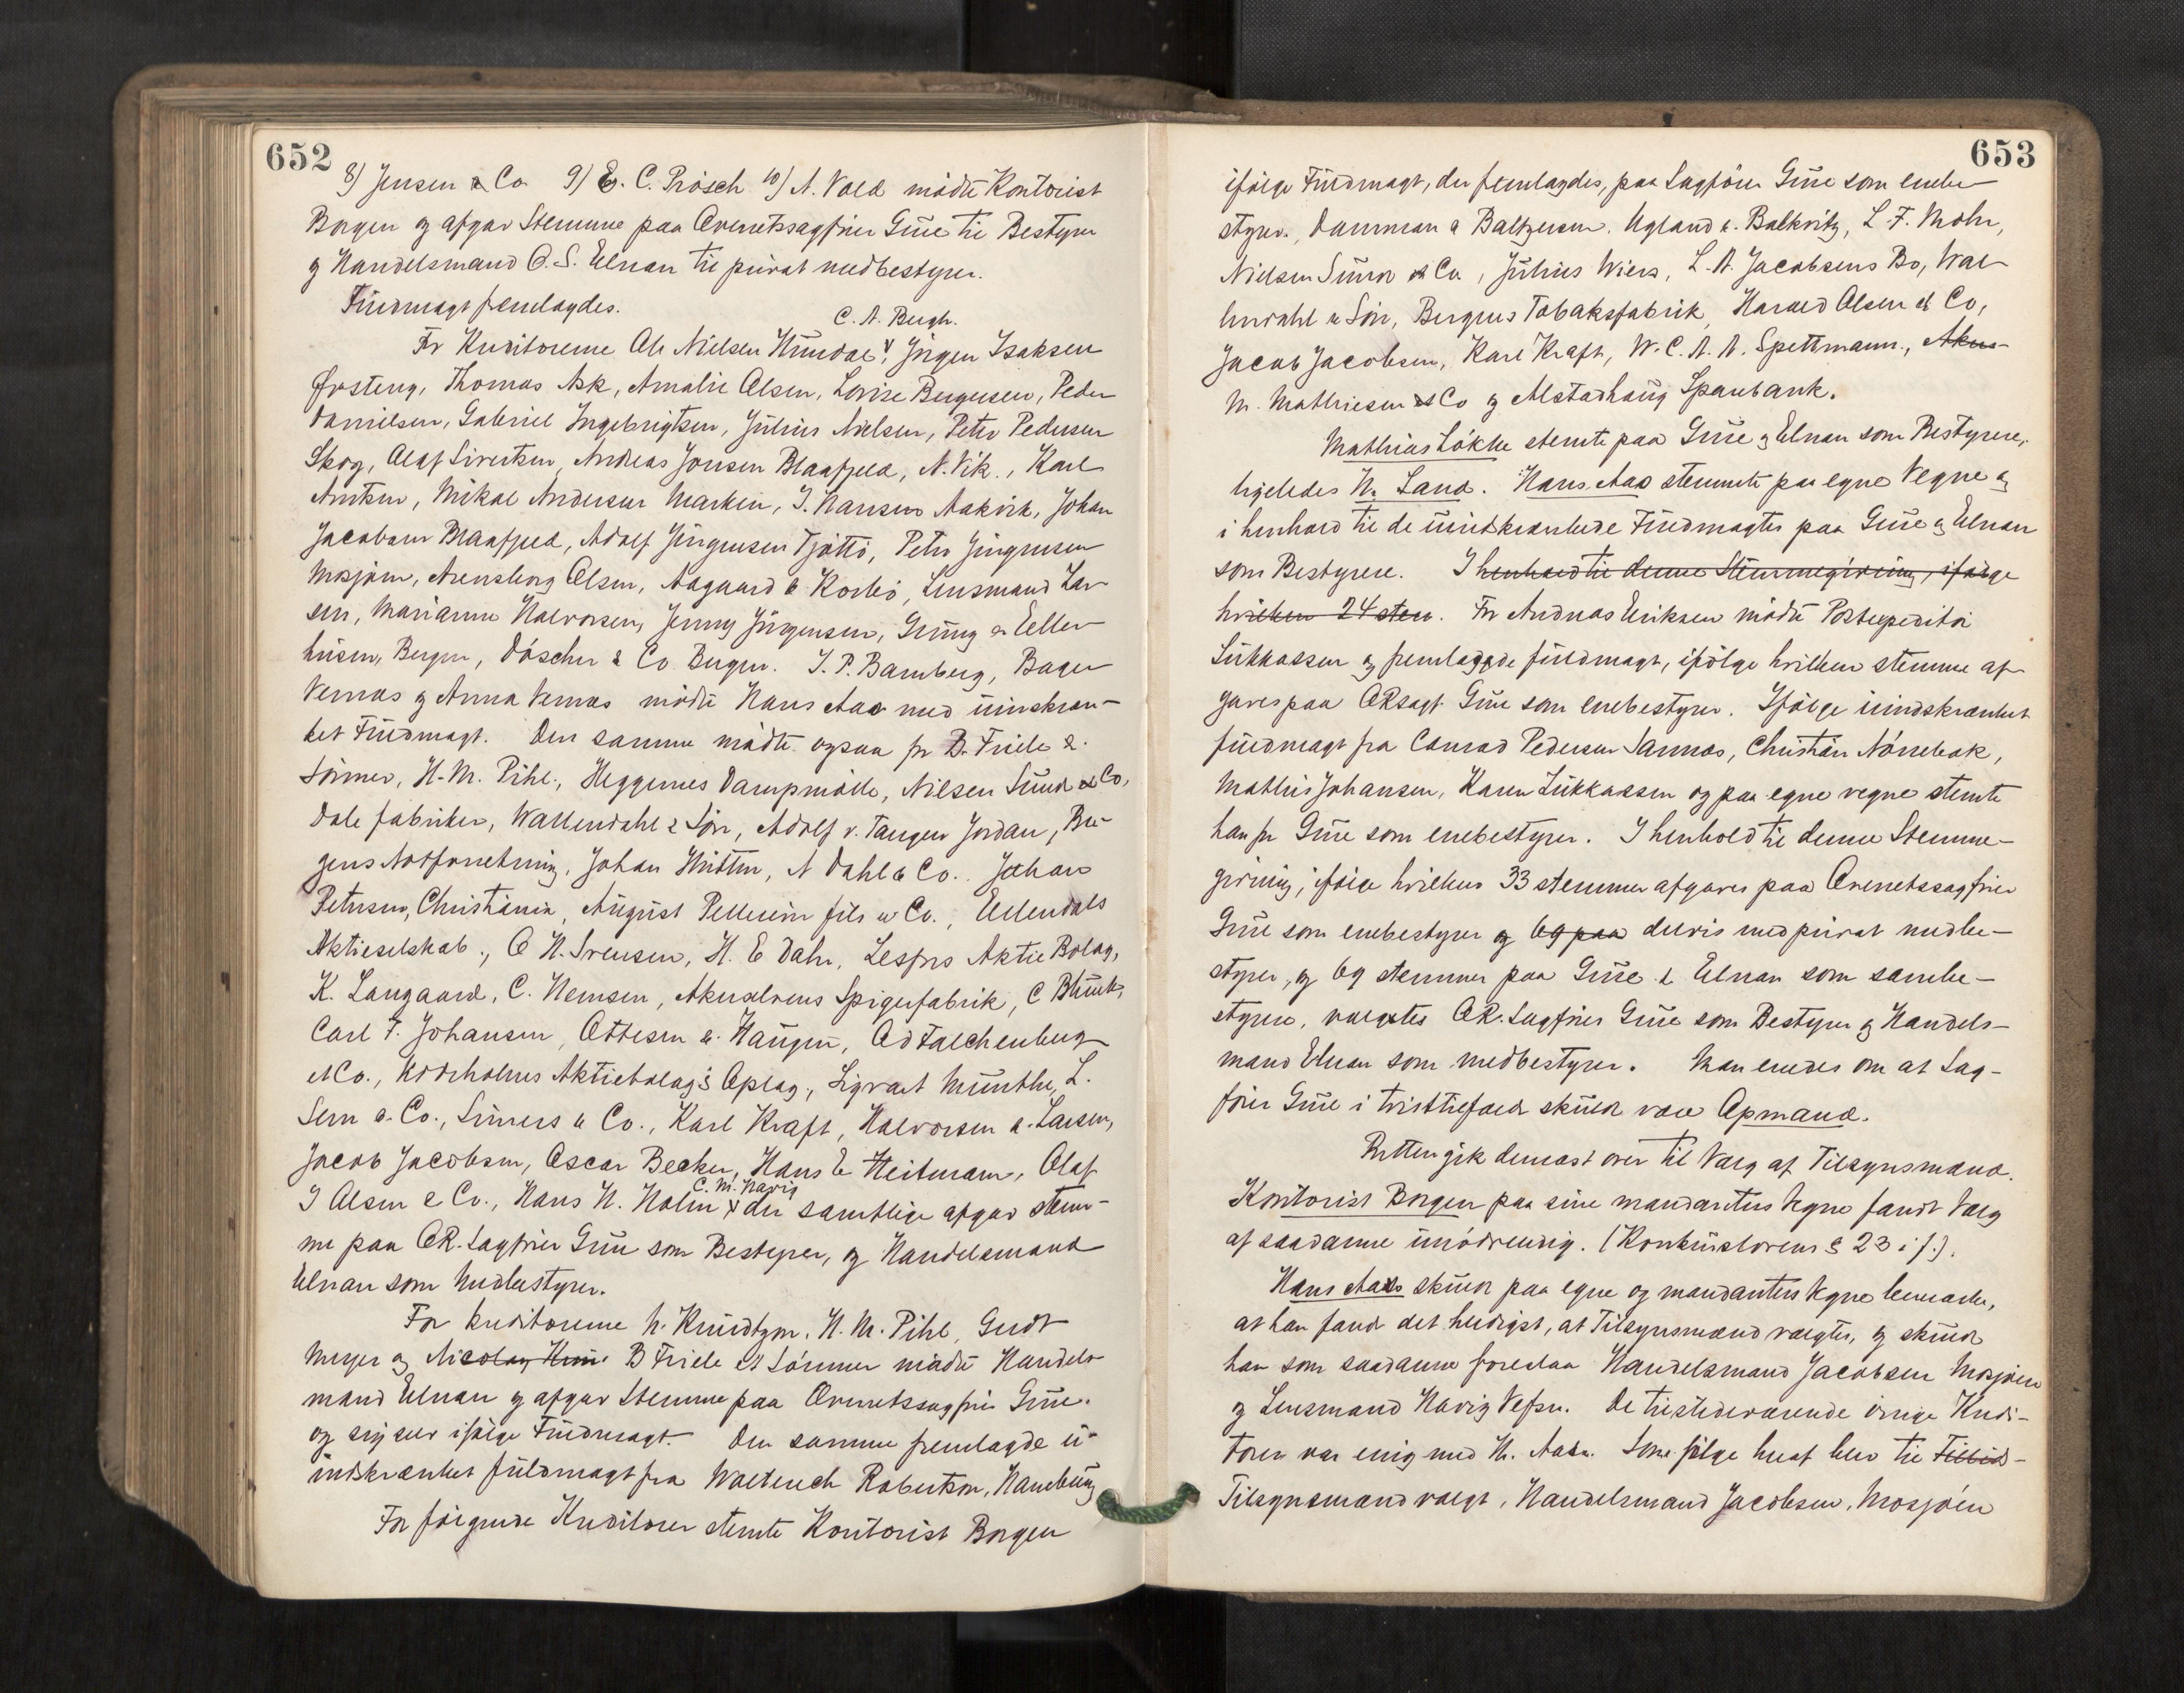 652
8) Jensen & Co 9) E. C. Prösch 10) A. Vold mödte Kontorist
Borgen og afgav Stemme paa Overretssagförer Grue til Bestyrer
og Handelsmand O. S. Elnan til privat medbestyrer.
Fuldmagt fremlagdes.
C. A. Bergh.
For Kreditorerne Ole Nielsen Hundal V, Jörgen Isaksen
Thomas Ask, Amalie Olsen, Lovise Bergersen, Peder
Danielsen, Gabriel Ingebrigtsen, Julius Nielsen, Peter Pedersen
Skog, Olaf Sivertsen, Andreas Jonsen Blaafjeld, N. Vik., Karl
Arntsen, Mikal Andersen Marken, I. Hansen Aakvik, Johan
Jacobsen Blaafjeld, Adolf Jörgensen Tjöttö, Peter Jörgensen
Mosjöen, Olsen, Aagaard & Korbö, Lensmand Lar
sen, Marianne Halvorsen, Jenny Jörgensen, Grung & Eller
husen, Bergen, Döscher & Co Bergen. I. P. Bamberg, Bager
Vernes og Anna Vernes mödte Hans Aas med uindskræn-
ket Fuldmagt. Den samme mödte ogsaa for B. Friele &
Sönner, H. M. Pihl., Heggernes Dampmölle, Nilsen Sund & Co,
Dale fabriker, Wallendahl & Sön, Adolf v. Tangen Jordan, Ber-
gens Notforretning, Johan Hütter, N Dahl & Co. Johan
Petersen, Christiania, August Pellerin fils & Co., Ellendals
Aktieselskab., O H. Svensen, H. E Dahr, Lesjöfors Aktie Bolag,
K. Langaard, C. Nemsen, Akerselvens Spigerfabrik, C Blunk,
Carl F. Johansen, Ottesen & Haugen, Od Falchenberg
& Co., Aktiebolag's Oplag, Sigvart Munthe, L.
Sem & Co., Simers & Co., Karl Kraft, Halvorsen & Larsen,
Jacob Jacobsen, Oscar Becker, Hans E Heitmann, Olaf
C. M. Havig
I Olsen & Co., Hans N. Holm V der samtlige afgav stem-
me paa OR. Sagförer Grue som Bestyrer, og Handelsmand
Elnan som Medbestyrer.
For kreditorerne h. Knudtzon, H. M. Pihl, Gerdt
Meyer og Nicolay B Friele & Sönner mödte Handels-
mand Elnan og afgav Stemme paa Overretssagförer Grue.
og sig selv ifölge Fuldmagt. Den samme fremlagde u-
indskrænket fuldmagt fra Robertson, Hamburg
For fölgende Kreditorer stemte Kontorist Borgen
653
ifölge Fuldmagt, der fremlagdes, paa Sagförer Grue som enebe-
styrer, Damman & Baltzersen, Ugland & Balkvitz, L. F. Mohr,
Nielsen Sund & Co., Julius Wiers, L. A. Jacobsens Bo, Wal-
lendahl & Sön, Bergens Tobaksfabrik, Harald Olsen & Co,
Jacob Jacobsen, Karl Kraft, W. C. A. A. Spettmann., Akers-
M. Mathiesen & Co og Alstadhaug Sparebank.
Mathias Lökke stemte paa Grue og Elnan som Bestyrere,
ligeledes N. Land. Hans Aas stemmte paa egne Vegne og
i henhold til de uindskrænkede Fuldmagter paa Grue og Elnan
som Bestyrere. I henhold til denne Stemmegivning, ifölge
hvilken 24 stem. For Andreas Eriksen mödte Postexpeditör
Lukkassen og fremlagde fuldmagt, ifölge hvilken stemme af-
gaves paa ORsagf. Grue som enebestyrer. Ifölge uindskrænket
fuldmagt fra Conrad Pedersen Sannes, Christian Nörrebæk,
Mathis Johansen, Karen Lukkassen og paa egne vegne stemte
han for Grue som enebestyrer. I henhold til denne Stemme-
givning, ifölge hvilken 33 stemmer afgaves paa Overretssagförer
Grue som enebestyrer og 69 paa delvis med privat medbe-
styrer, og 69 stemmer paa Grue & Elnan som sambe-
styrere, valgtes OR. Sagförer Grue som Bestyrer og Handels-
mand Elnan som medbestyrer. Man enedes om at Sag-
förer Grue i tvisttilfælde skulde være Opmand.
Retten gik dernæst over til Valg af Tilsynsmænd.
Kontorist Borgen paa sine mandanters Vegne fandt Valg
af saadanne unödvendig. (Konkurslovens § 23 i f.).
Hans Aas skulde paa egne og mandanters Vegne bemærke,
at han fandt det heldigst, at Tilsynsmænd valgtes, og skulde
han som saadanne foreslaa Handelsmand Jacobsen Mosjöen
og Lensmand Havig Vefsn. De tilstedeværende övrige Kredi-
torer var enig med H. Aas. Som fölge heraf blev til Tillids-
Tilsynsmænd valgt, Handelsmand Jacobsen, Mosjöen